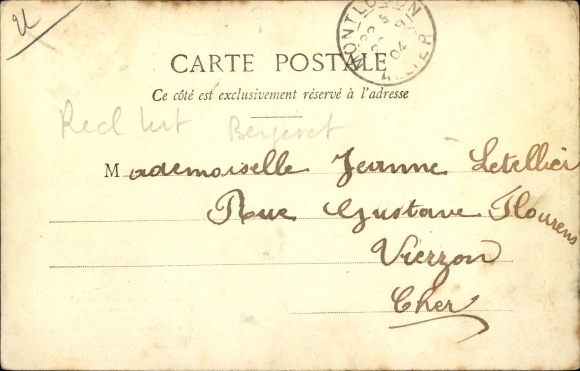 MONTLUÇON
ALLIER
CARTE POSTALE
Ce côté est exclusivement réservé à l'adresse
Bergeret
Mademoiselle Jeanne Letellier
Rue Gustave Flourens
Vierzon
Cher